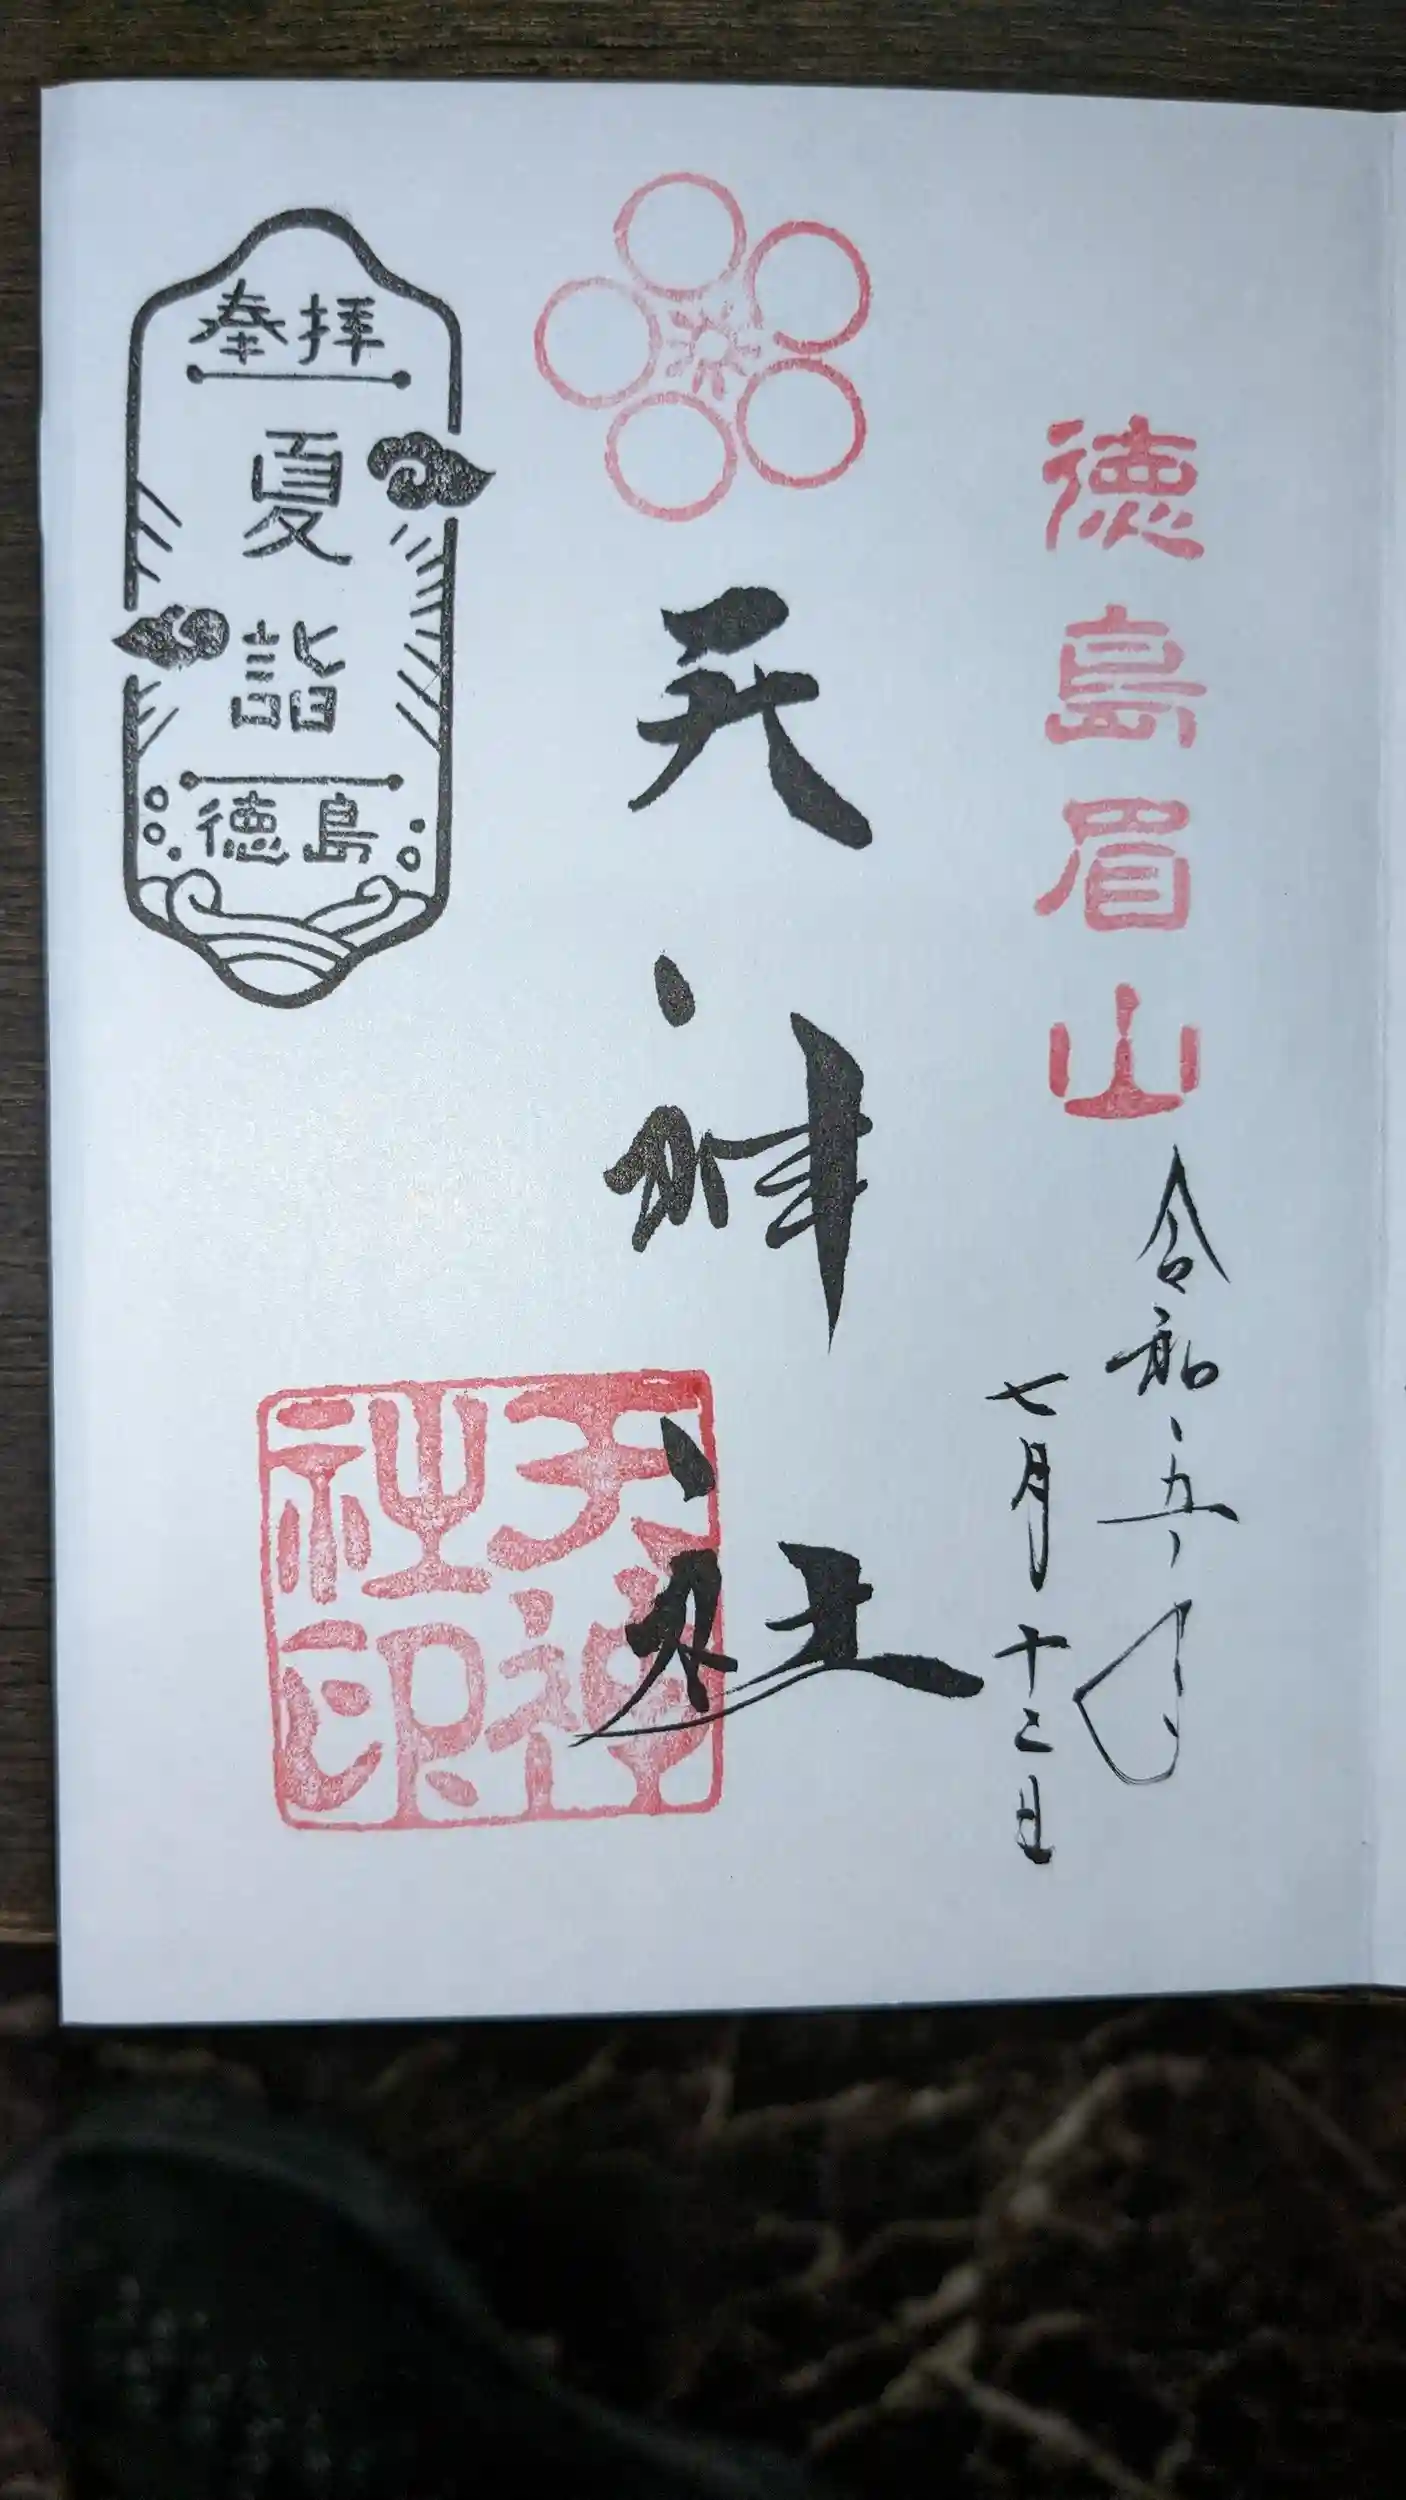 徳島眉山
令和五年
七月十二日
天神社
天神社印
奉拝
夏詣
徳島